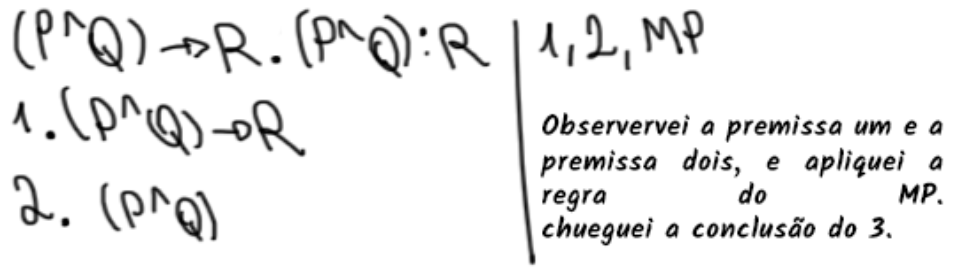 (P^Q) → R. (P^Q) : R
1. (P^Q) → R
2. (P^Q)
1, 2, MP
Observervei a premissa um e a
premissa dois, e apliquei a
regra do MP.
chueguei a conclusão do 3.